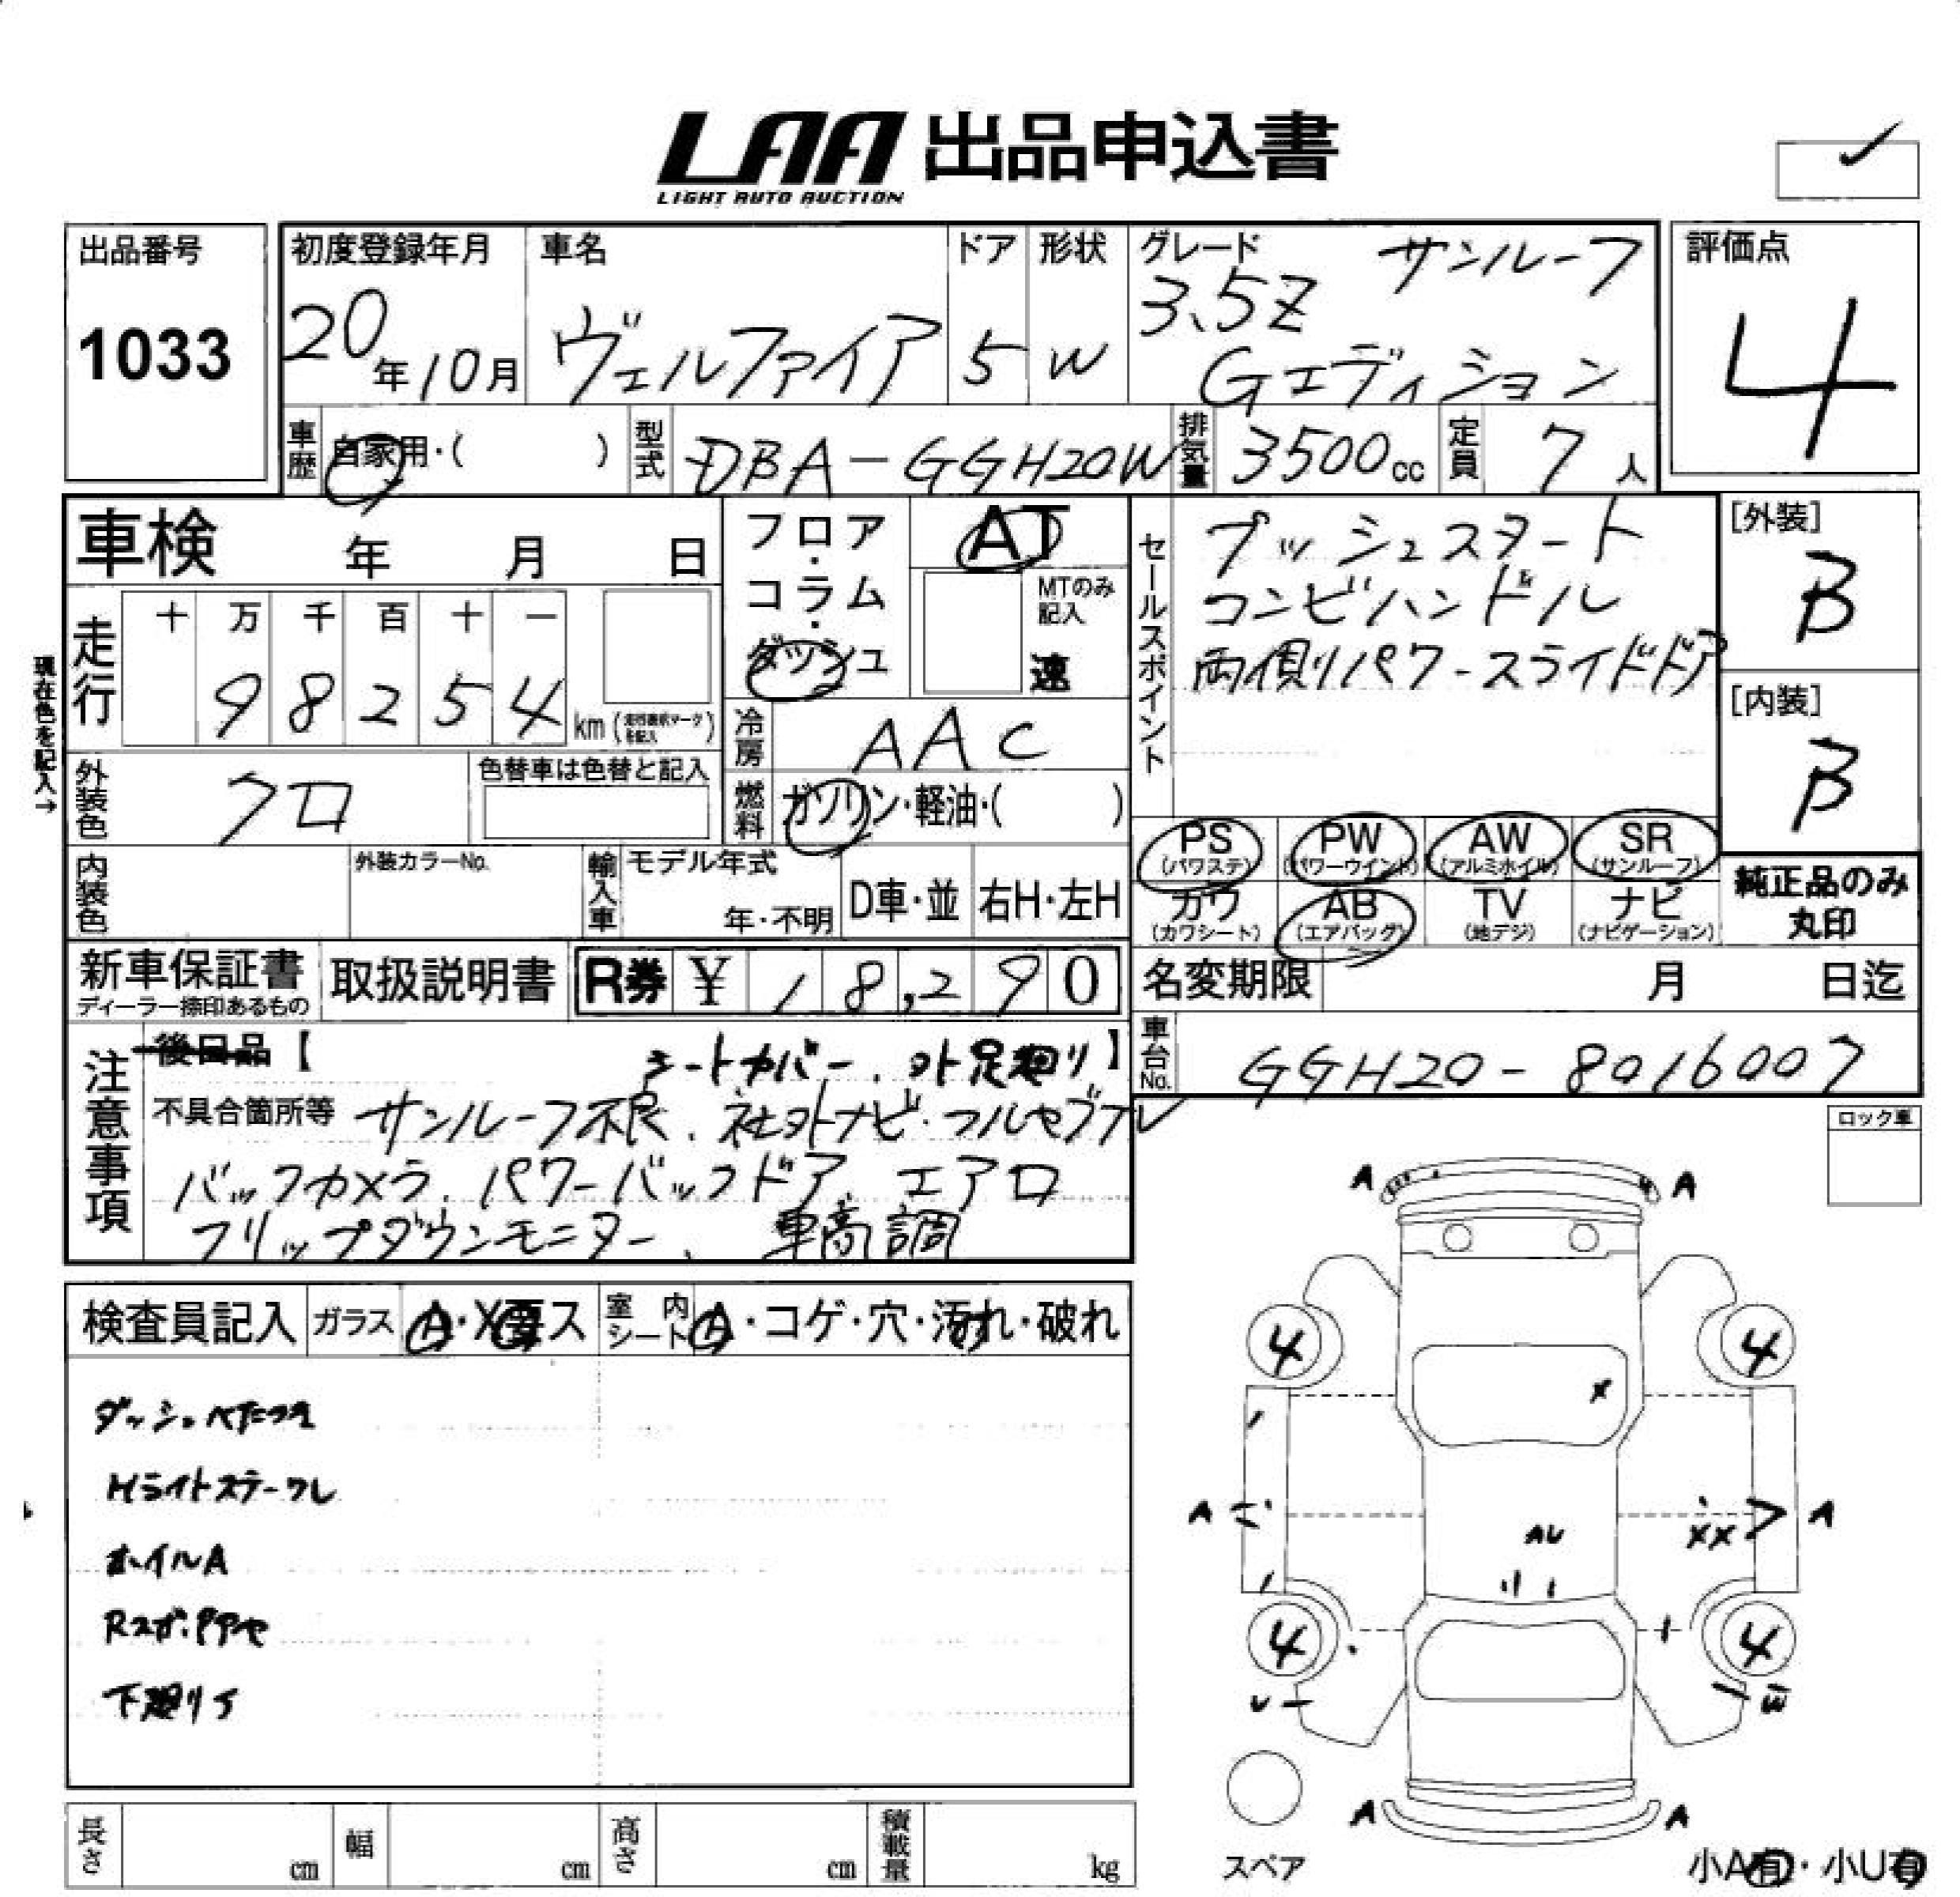 LAA 出品申込書
LIGHT AUTO AUCTION
出品番号
1033
初度登録年月
20年10月
車名
ヴェルファイア
ドア
5
形状
W
グレード
サンルーフ
3.5Z
Gエディション
評価点
4
車歴
自家用・( )
型式
DBA-GGH20W
排気量
3500cc
定員
7人
車検 年 月 日
走行
十 万 千 百 十 一
9 8 2 5 4 km
現在色を記入→
フロア・コラム・ダッシュ
AT
MTのみ記入
速
冷房
AAC
燃料
ガソリン・軽油・( )
セールスポイント
プッシュスタート
コンビハンドル
両側リパワースライドドア
[外装]
B
[内装]
B
外装色
クロ
色替車は色替と記入
内装色
外装カラーNo.
輸入車
モデル年式
年・不明
D車・並
右H・左H
PS (パワステ)
PW (パワーウインド)
AW (アルミホイル)
SR (サンルーフ)
カワ (カワシート)
AB (エアバッグ)
TV (地デジ)
ナビ (ナビゲーション)
純正品のみ
丸印
新車保証書
ディーラー捺印あるもの
取扱説明書
R券 ¥ 18,290
名変期限 月 日迄
車台No.
GGH20-8016007
注意事項
後日品【 シートカバー、外足廻り】
不具合箇所等 サンルーフ不良、社外ナビ・フルセグ
バックカメラ、パワーバックドア、エアロ
フリップダウンモニター、車高調
ロック車
検査員記入
ガラス
A・X要ス
室内シート
A・コゲ・穴・汚れ・破れ
ダッシュベたつき
Hライトステークレ
ホイルA
下廻りサ
A A
4 4
X
A A
XX
AU
4 4
U W
A A
スペア
小A有・小U有
長さ cm
幅 cm
高さ cm
積載量 kg